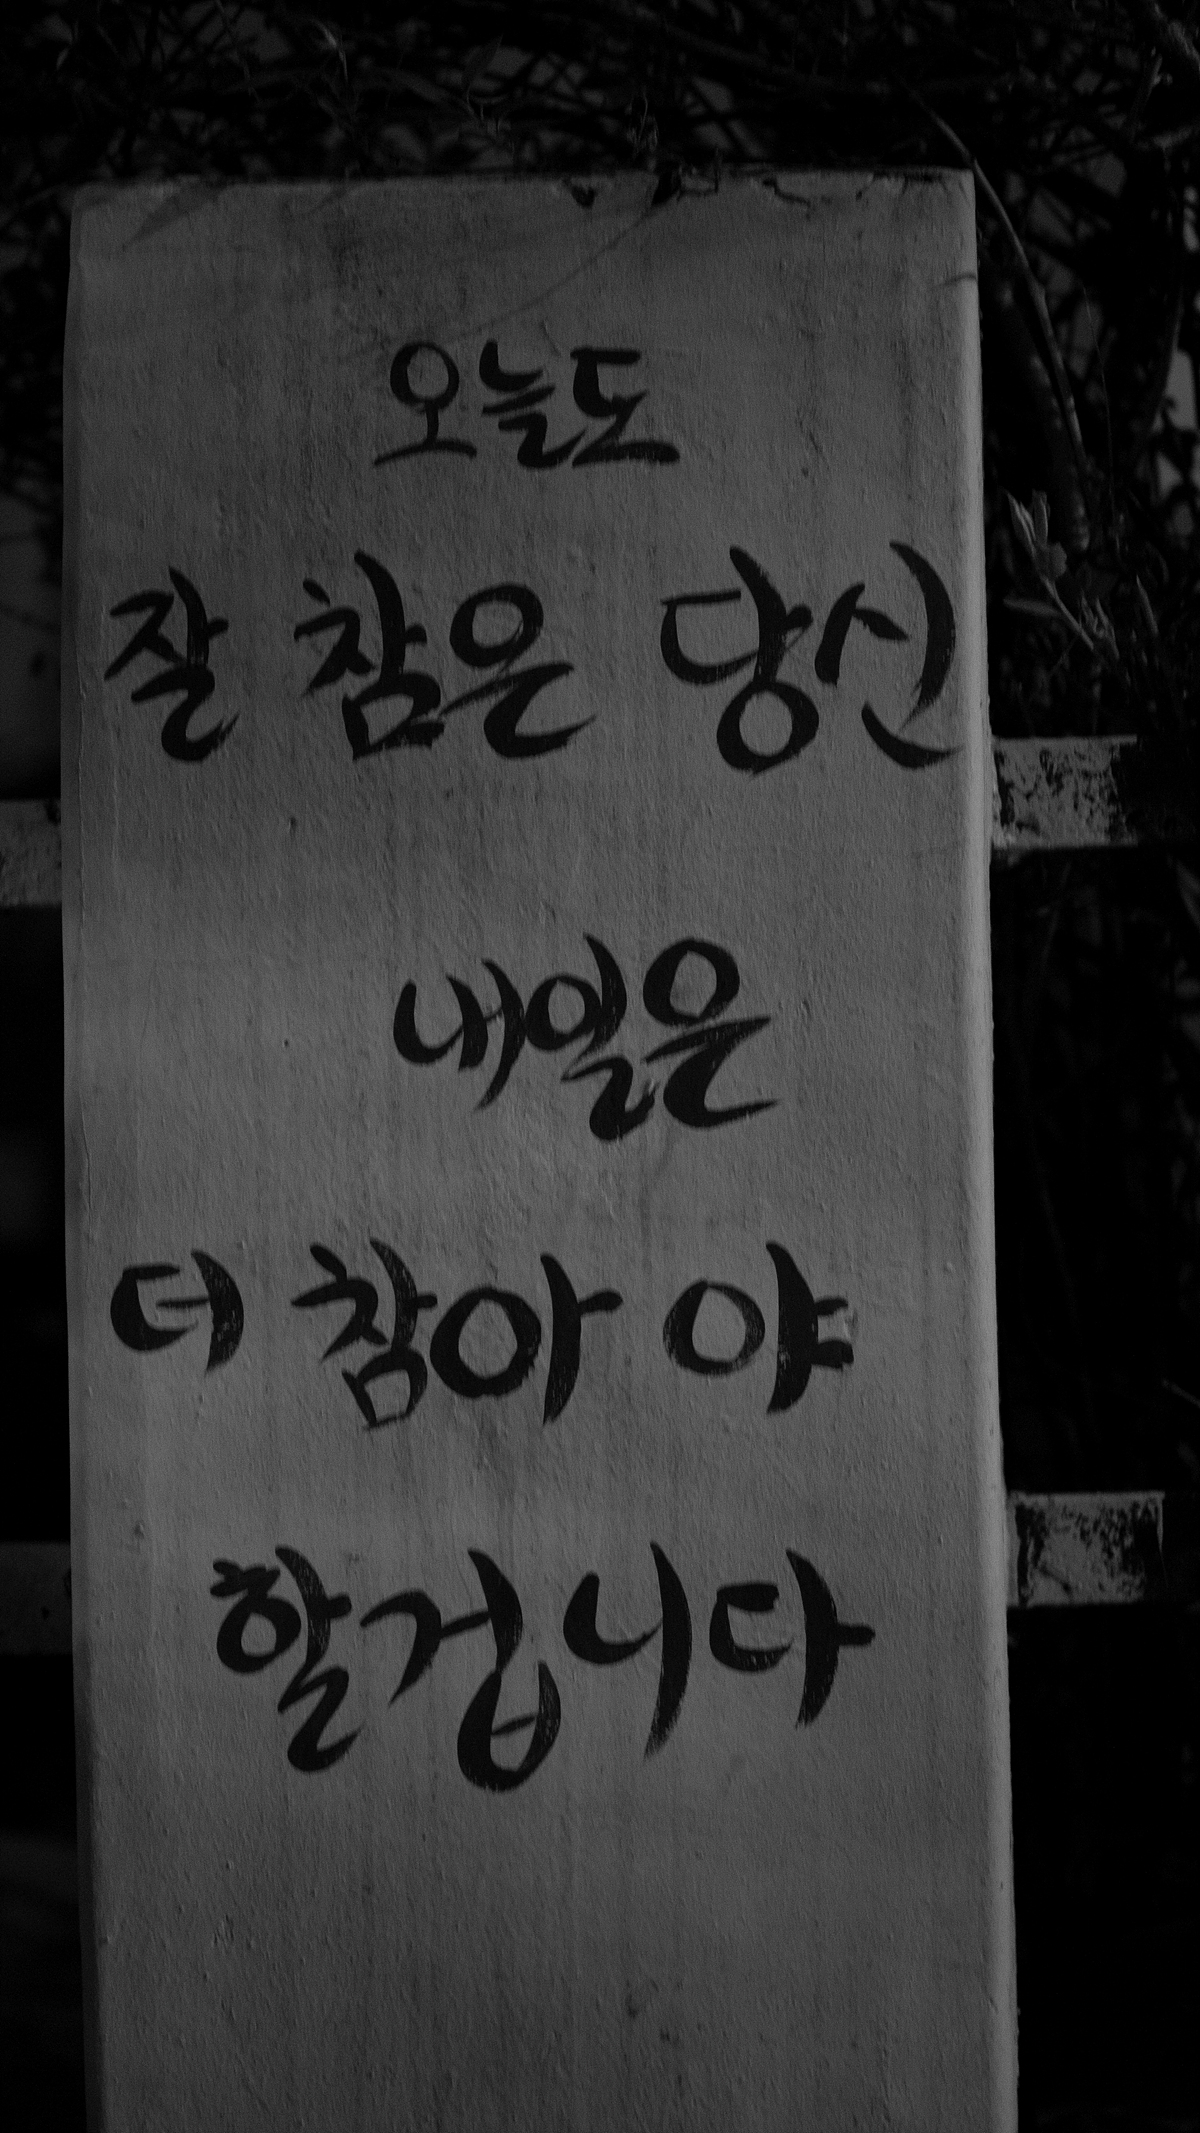 오늘도
잘 참은 당신
내일은
더 참아 야
할겁니다